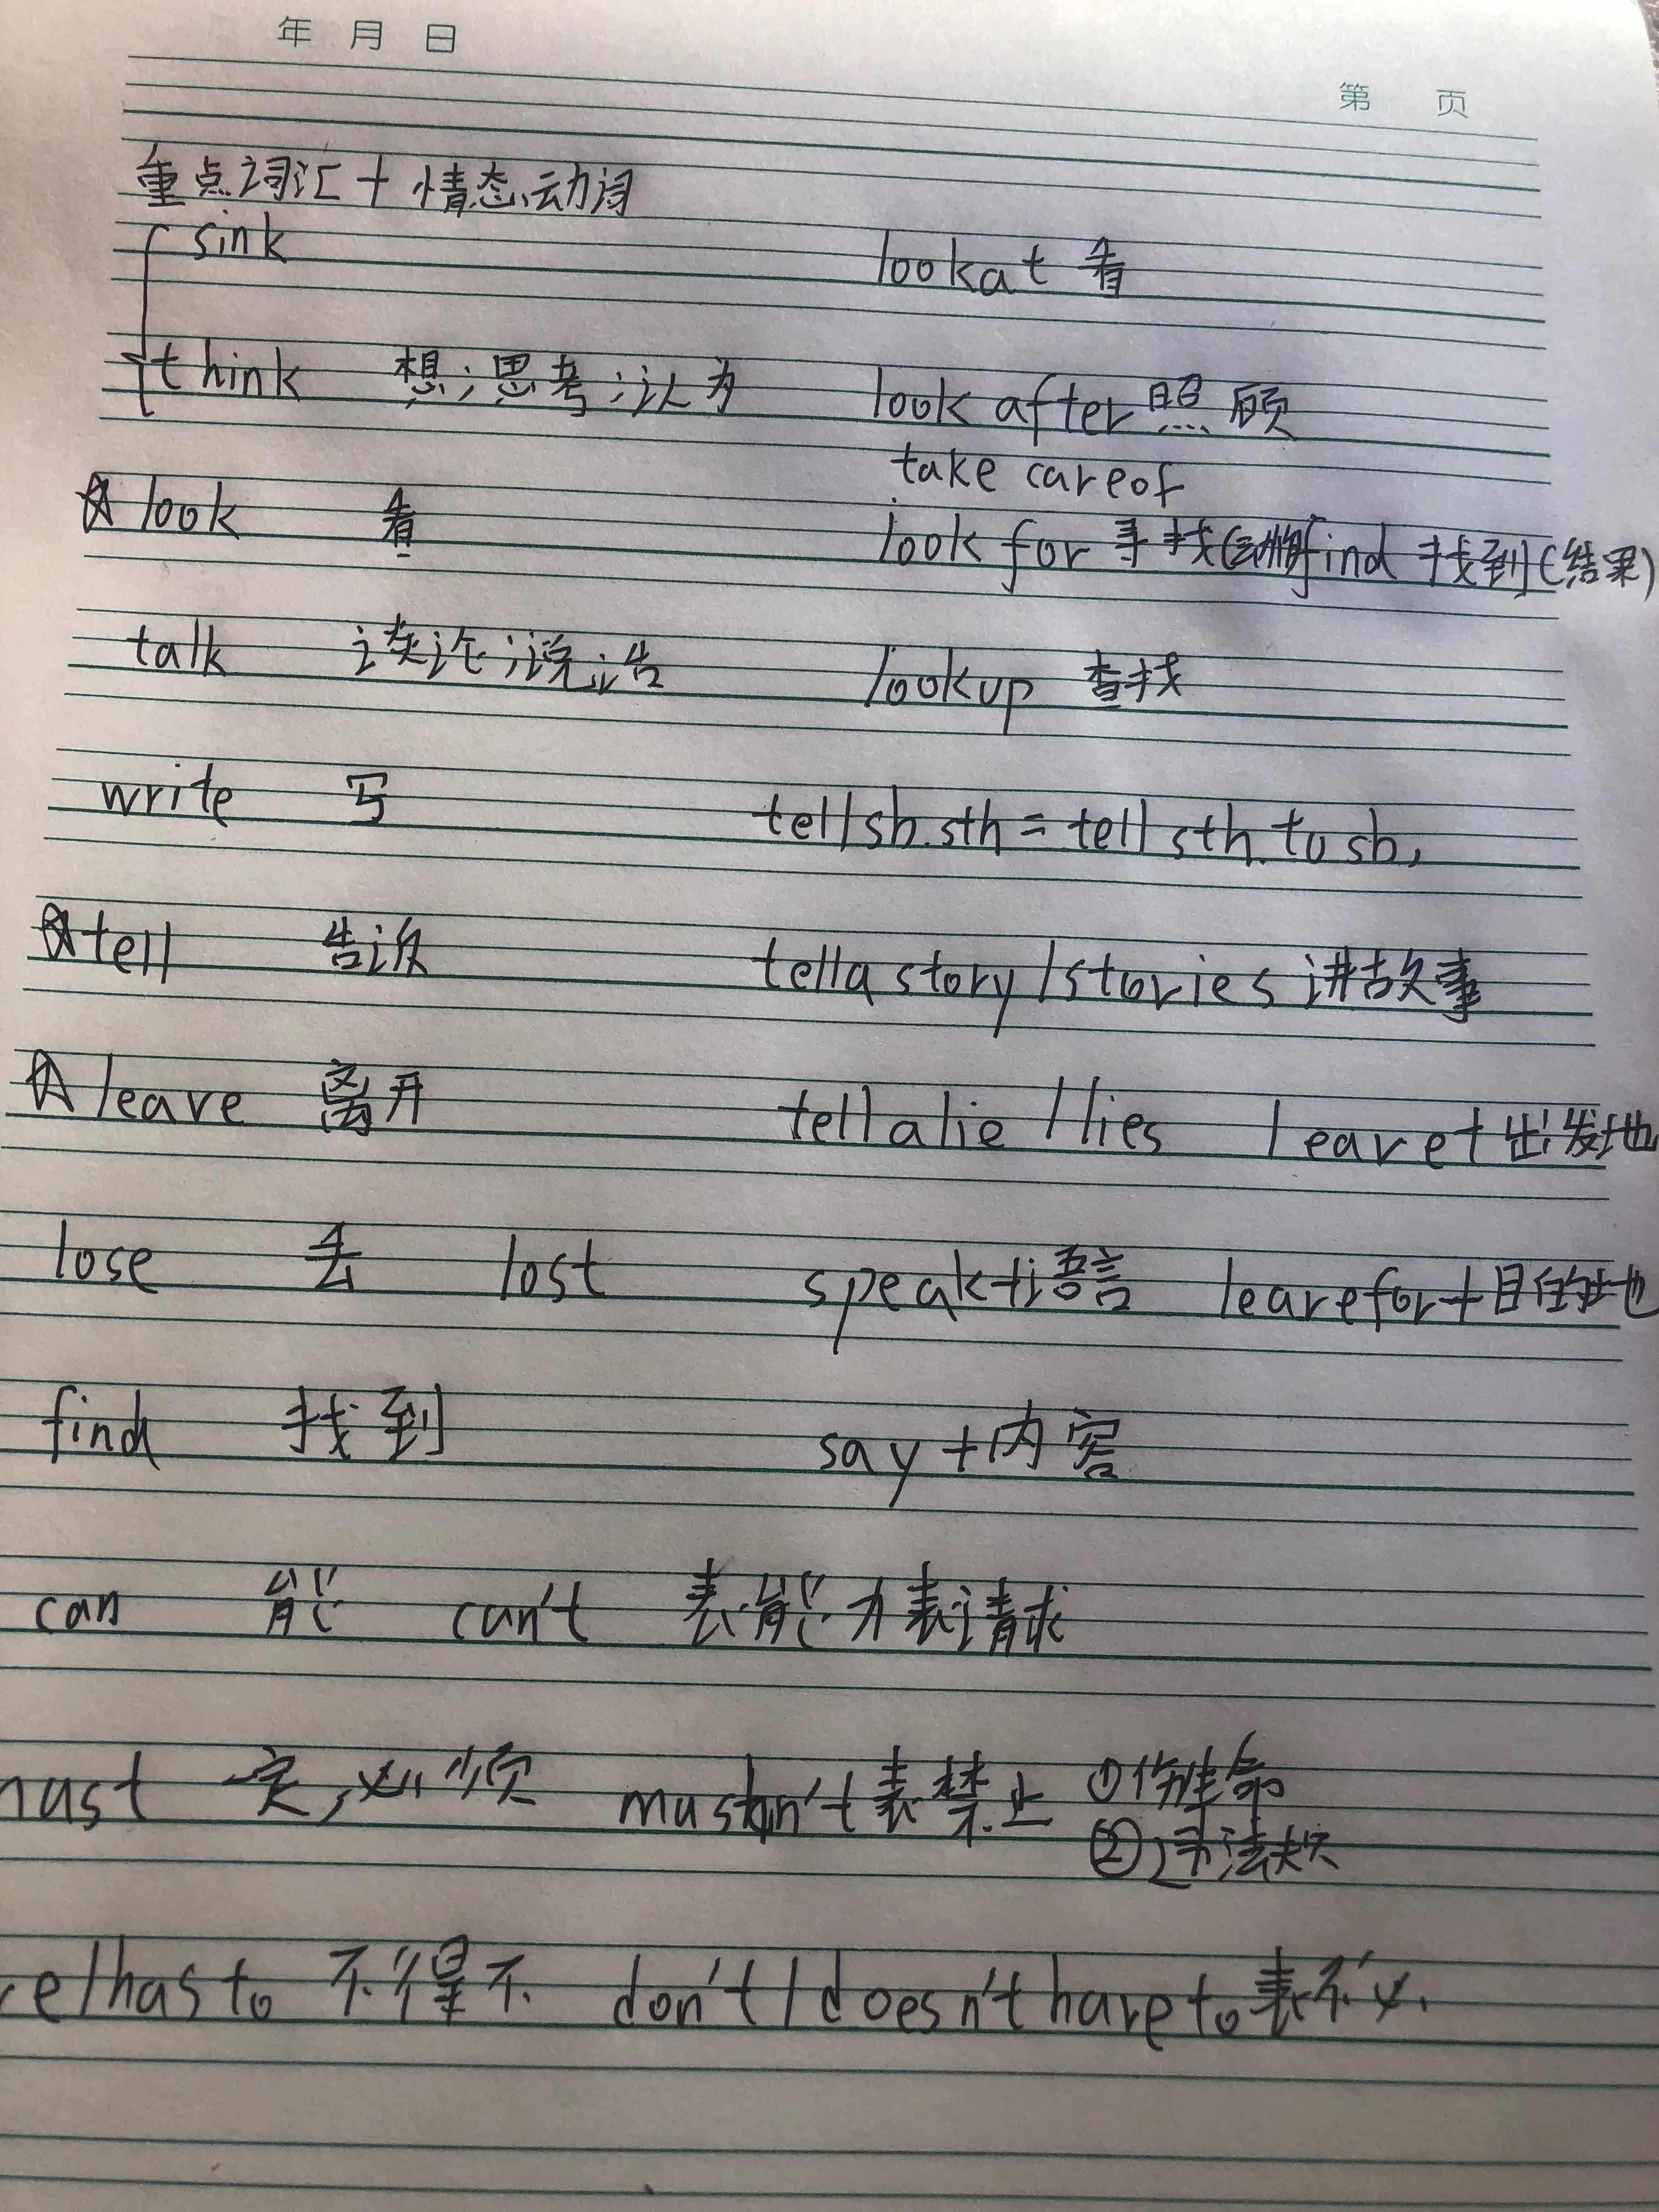 年 月 日
第 页
重点词汇+情态动词
sink
look at 看
think 想;思考;认为
look after 照顾
take care of
☆ look 看
look for 寻找(动作) find 找到(结果)
talk 谈论;说话
look up 查找
write 写
tell sb. sth = tell sth. to sb.
☆ tell 告诉
tell a story / stories 讲故事
☆ leave 离开
tell a lie / lies leave + 出发地
lose 丢 lost
speak + 语言 leave for + 目的地
find 找到
say + 内容
can 能 can't 表能力 表请求
must 一定,必须 mustn't 表禁止 ①伤生命
②
e/has to 不得不 don't / doesn't have to 表不必